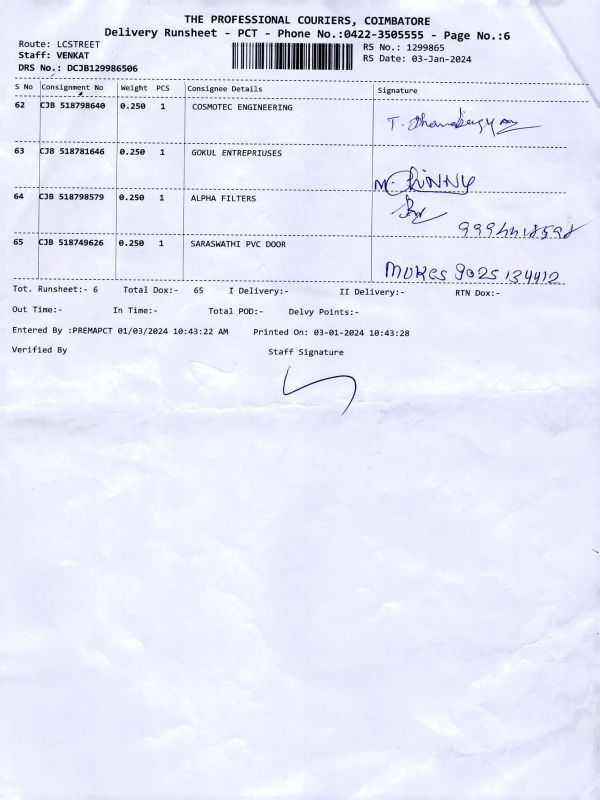 THE PROFESSIONAL COURIERS, COIMBATORE
Delivery Runsheet - PCT - Phone No.:0422-3505555 - Page No.:6
Route: LCSTREET
RS No.: 1299865
Staff: VENKAT
RS Date: 03-Jan-2024
DRS No.: DCJB129986506
S No Consignment No Weight PCS Consignee Details Signature
62 CJB 518798640 0.250 1 COSMOTEC ENGINEERING
63 CJB 518781646 0.250 1 GOKUL ENTREPRIUSES
M. CHINNY
64 CJB 518798579 0.250 1 ALPHA FILTERS
65 CJB 518749626 0.250 1 SARASWATHI PVC DOOR
MUKES 9025134912
Tot. Runsheet:- 6 Total Dox:- 65 I Delivery:- II Delivery:- RTN Dox:-
Out Time:- In Time:- Total POD:- Delvy Points:-
Entered By :PREMAPCT 01/03/2024 10:43:22 AM Printed On: 03-01-2024 10:43:28
Verified By Staff Signature